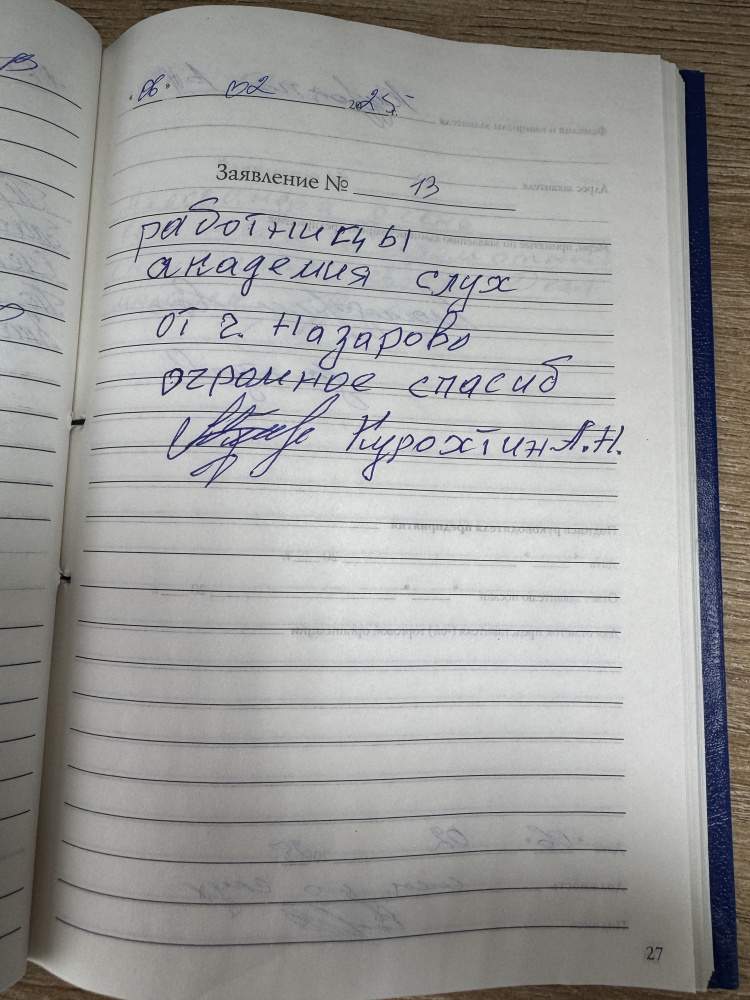 "06" 02 2025 г.
Заявление № 13
работницы
академия слух
от г. Назарово
огромное спасиб
Курохтин А.Н.
27